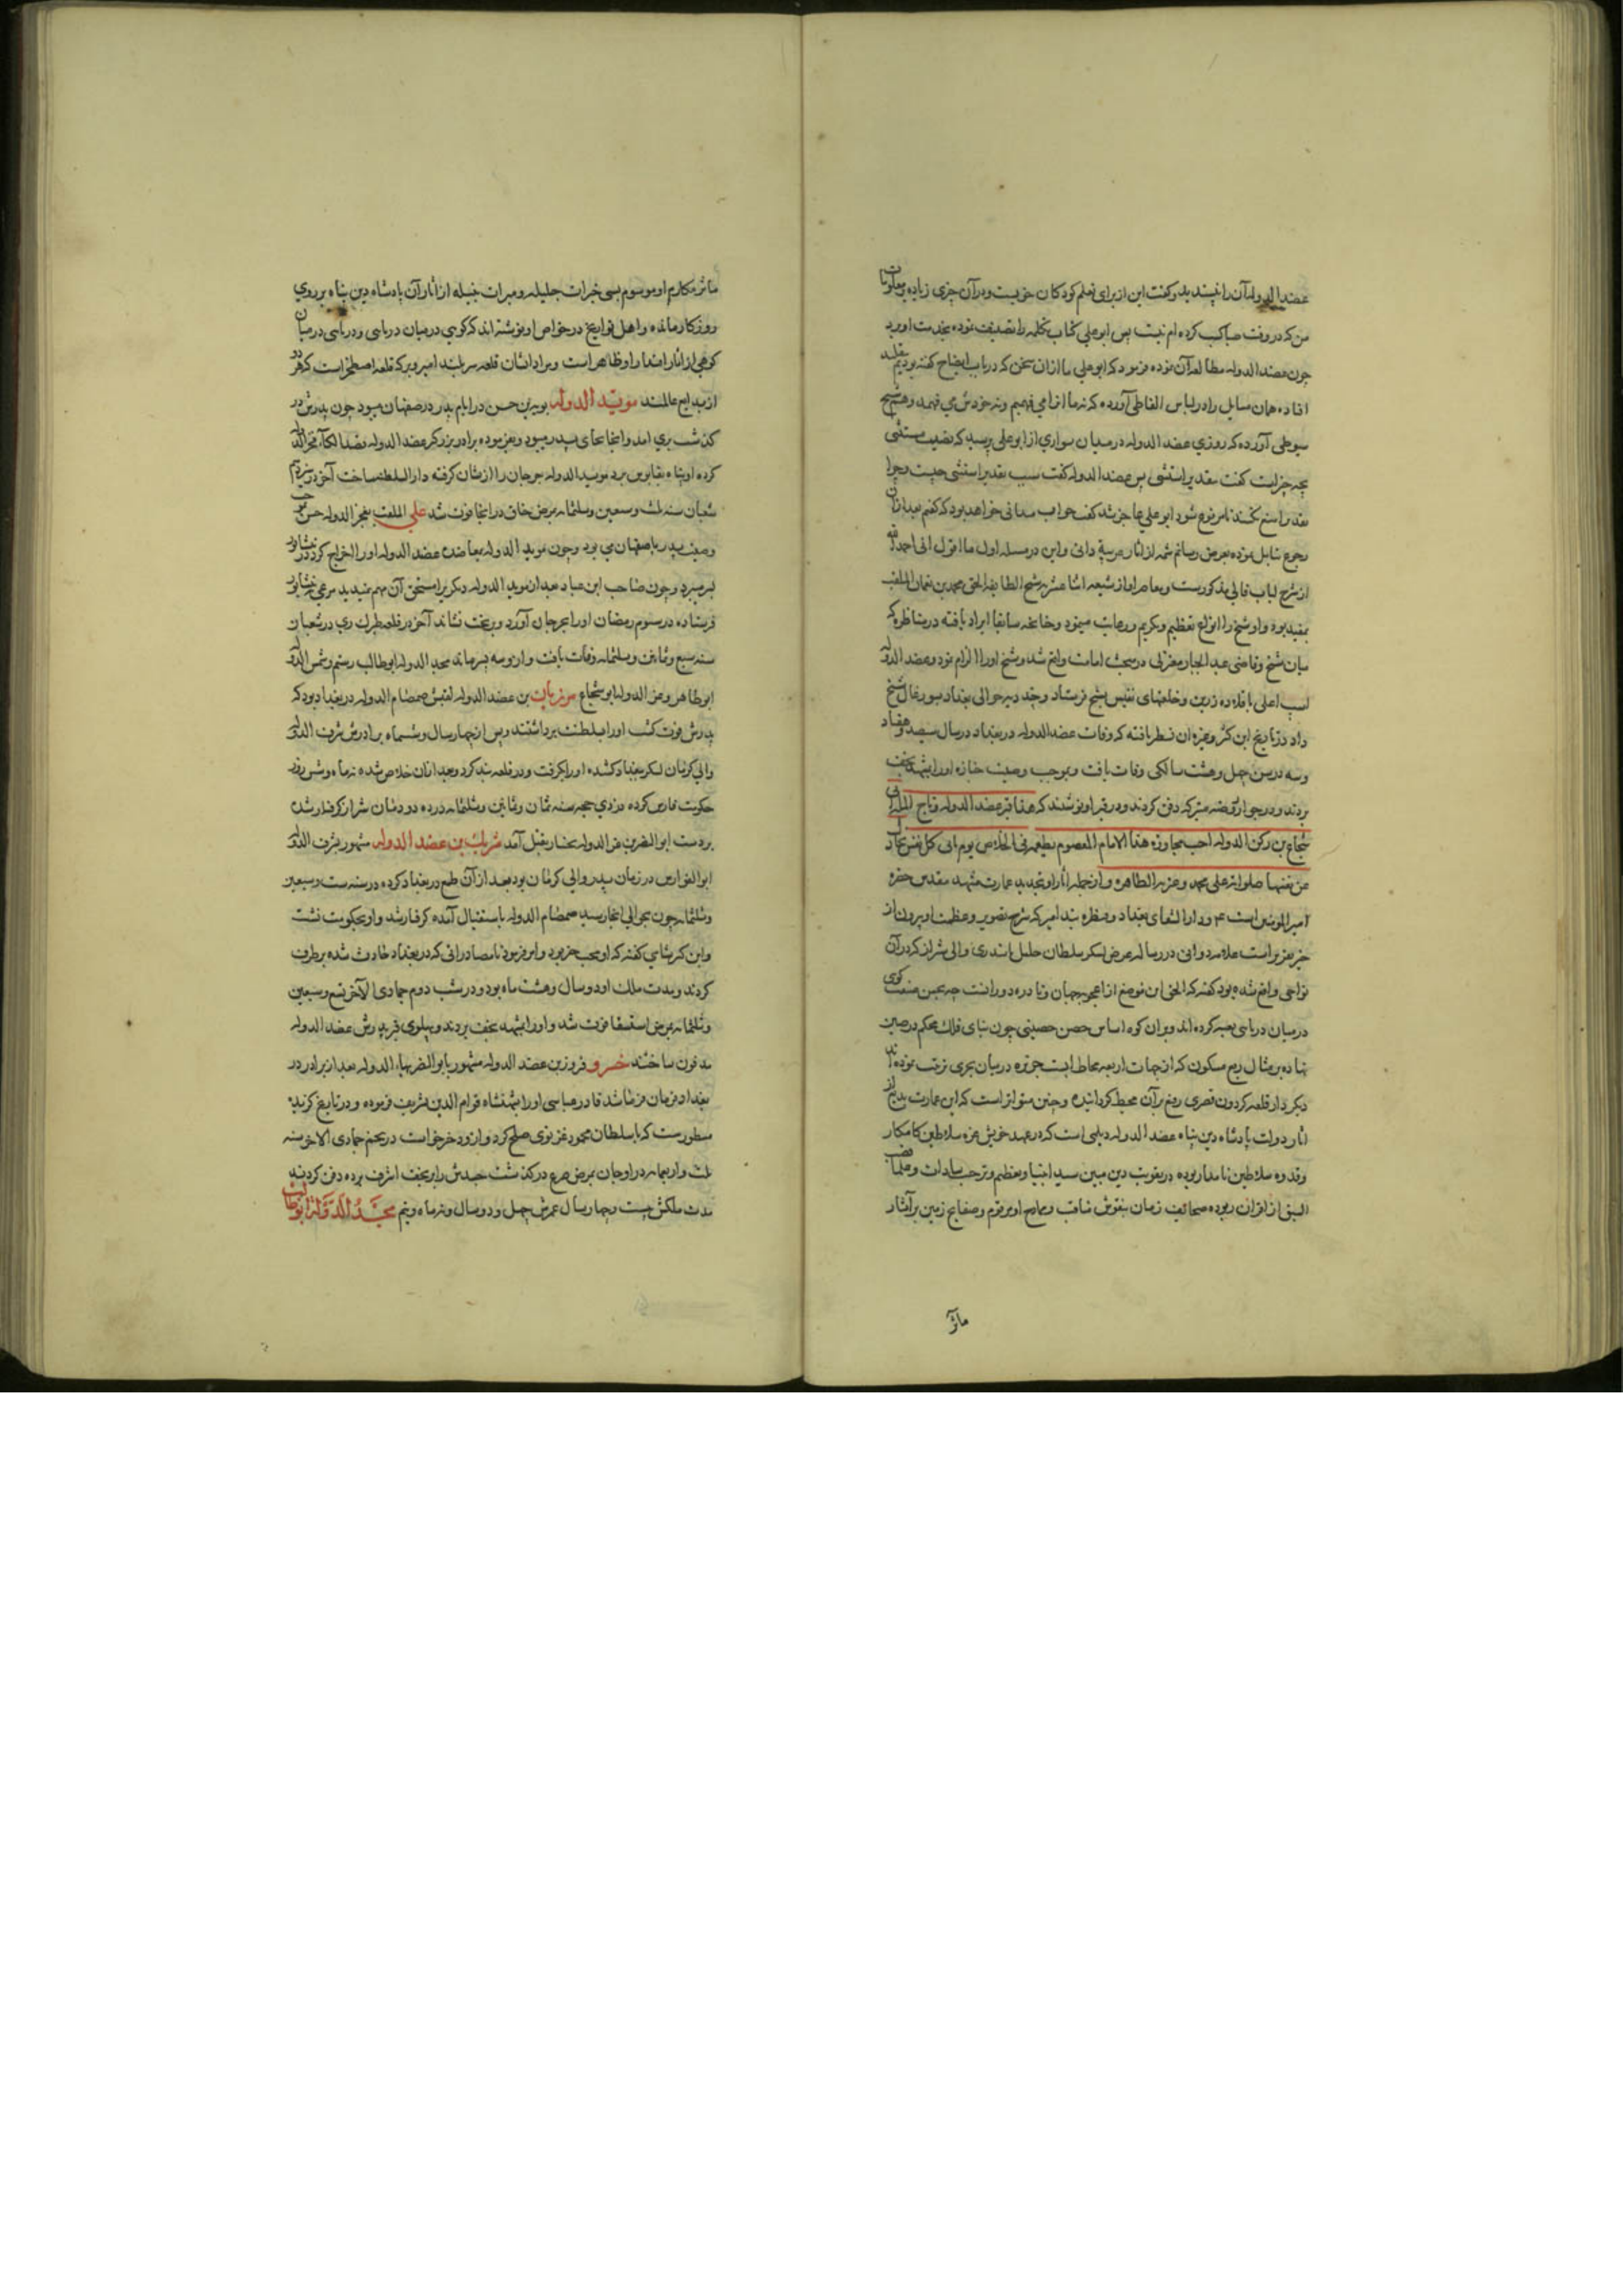 عضد الدوله آن را نپسندید و گفت این از برای تعلم کودکان خوبست و در آن چیزی زیاده بر معلومات
من که در وقت صبا کسب کرده ام نیست پس ابو علی کتاب تکمله را تصنیف نموده بخدمت آورد
چون عضد الدوله مطالعه آن نموده فرمود که ابو علی ما از آن سخن که در باب ایضاح گفته بودیم
افتاده همان مسایل را در لباس الفاظی آورده که نه ما آنرا می فهمیم و نه خودش می فهمد و هم شیخ
سیوطی آورده که روزی عضد الدوله در میان سواری از ابو علی پرسید که نصب مستثنی
بچه چیز است گفت بتقدیر استثنی پس عضد الدوله گفت سبب تقدیر استثنی چیست و چرا
تقدیر امتنع نکنند تا مرفوع شود ابو علی عاجز شد گفت جواب میدانی خواهد بود که گفتم بعد از آن
رجوع نموده بعرض رسانم شمه از آثار عربیة دانی و این در مسئله اول ما اقول انی احمد الله
از شرح لباب فالی مذکورست و معاصر او از شیعه اثنا عشریه شیخ الطایفه الحق محمد بن نعمان الملقب
بمفید بوده و او شیخ را انواع تعظیم و تکریم و رعایت مینمود و چنانچه سابقا ایراد یافته در مناظره که
میان شیخ و قاضی عبد الجبار معتزلی در مبحث امامت واقع شد و شیخ او را الزام نمود و عضد الدوله
اسب اعلی با قلاده زرین و خلعتهای نفیس بشیخ فرستاد و چند دیه حوالی بغداد بسیورغال شیخ
داد در تاریخ ابن کثیر و غیره آن نظر یافته که وفات عضد الدوله در بغداد در سال سیصد و هفتاد
و سه در سن چهل و هشت سالگی وفات یافت و بموجب وصیت جنازه او را بمشهد نجف
بردند و در جوار روضه متبرکه دفن کردند و در قبر او نوشتند که هذا قبر عضد الدوله و تاج المله ابی
شجاع بن رکن الدوله احب مجاوزة هذا الامام المعصوم بطمعه فی الخلاص یوم اتی کل نفس تجادل
عن نفسها صلواته علی محمد و عترته الطاهره و از جمله آثار او تجدید عمارت مشهد مقدس حضره
امیر المؤمنین است ع و دار الشفای بغداد و بند امیر که شرح تصویر و عظمت او بیرون از
حیز تحریر است علامه دوانی در رساله عرض لشکر سلطان خلیل بایندری والی شیراز که در آن
نواحی واقع شده بود گفته که الحق این موضع از اعجوبه جهان و نادره دورانست چه بعین صنعت کوی
در میان دریایی تعبیه کرده اند و بر آن کوه اساس حصن حصینی چون بنای فلک محکم و رصین
نهاده بر مثال ربع مسکون که از جهات اربعه محاط است جزیره در میان بحری ترتیب نموده اند
دیگر دار قلعه گردون قصری رفیع بر آن محیط گردانیده و چنین متواتر است که این عمارت بدیع از
آثار دولت پادشاه دین پناه عضد الدوله دیلمی است که در عهد خویش غره سلاطین کامکار
و قدوه سلاطین نامدار بوده در تقویت دین مبین سید انبیا و تعظیم و ترحیب سادات و علما قصب
السبق از اقران ربوده صحائف زمان بنقوش مناقب و مدایح او مرقوم و صفایح زمین بر آثار
مآثر
مآثر مکارم او موسوم بسی خیرات جلیله و مبرات جمیله از آثار آن پادشاه دین پناه بر روی
روزگار مانده و اهل تواریخ در خواص او نوشته اند که کوهی در میان دریایی و دریایی در میان
کوهی از آثار اقتدار او ظاهر است و مراد ایشان قلعه سربلند امیر و برکه قلعه اصطخر است که هر دو
از بدایع عالمند مویّد الدوله بویه بن حسن در ایام پدر در صفهان میبود چون پدرش در
گذشت بری آمد و آنجا بجای پدر میبود و بفرموده برادر بزرگتر عضد الدوله قصد الکاء فخر الدوله
کرده او پناه بقابوس برد موید الدوله جرجان را از ایشان گرفته دار السلطنه ساخت آخر در سیزدهم
شعبان سنه ثلث و سبعین و ثلثمائه بمرض خناق در آنجا فوت شد علی الملقب بفخر الدوله حسن بموجب
وصیت پدر باصفهان می بود و چون موید الدوله بمعاضدت عضد الدوله او را اخراج کرد در نشابور
بسر میبرد و چون صاحب ابن عباد بعد از موید الدوله دیگری را مستحق آن مهم ندید مسرعی بنشابور
فرستاده در سوم رمضان او را بجرجان آورد و بر تخت نشاند آخر در قلعه طبرک ری در شعبان
سنه سبع و ثمانین و ثلثمائه وفات یافت و از وسه پسر ماند مجد الدوله ابو طالب رستم و شمس الدوله
ابو طاهر و عز الدوله ابو شجاع مرزبان بن عضد الدوله لقبش صمصام الدوله در بغداد بود که
پدرش فوت گشت او را بسلطنت برداشتند و پس از چهار سال و ششماه برادرش شرف الدوله
والی کرمان لشکر ببغداد کشیده او را بگرفت و در قلعه بند کرد و بعد از آن خلاص شده نه ماه و شش روز
حکومت فارس کرده در ذی حجه سنه ثمان و ثمانین و ثلثمائه در ده دودمان شیراز گرفتار شده
بر دست ابو النصر بن عز الدوله بختیار بقتل آمد شیرذیل بن عضد الدوله مشهور بشرف الدوله
ابو الفوارس در زمان پدر والی کرمان بود بعد از آن طمع در بغداد کرده در سنه ست و سبعین
و ثلثمائه چون بحوالی آنجا رسید صمصام الدوله باستقبال آمده گرفتار شد و او بحکومت نشست
و ابن کثیر شامی گفته که او محب خیر بود و امر فرمود تا مصادراتی که در بغداد حادث شده بر طرف
کردند و مدت ملک او دو سال و هشت ماه بود و در شب دوم جمادی الآخر تسع و سبعین
و ثلثمائه بمرض استسقا فوت شد و او را بمشهد نجف بردند و پهلوی قبر پدرش عضد الدوله
مدفون ساختند خسرو فیروز بن عضد الدوله مشهور بابو النصر بهاء الدوله بعد از برادر در
بغداد فرمان فرما شد قادر عباسی او را شهنشاه قوام الدین تشریف فرموده و در تاریخ گزیده
مسطورست که با سلطان محمود غزنوی صلح کرد و از و دختر خواست در پنجم جمادی الاخر سنه
ثلث و اربعمائه در اوجان بمرض صرع در گذشت جسدش را بنجف اشرف برده دفن کردند
مدت ملکش بیست و چهار سال عمرش چهل و دو سال و نه ماه و نیم مجد الدوله ابو طالب